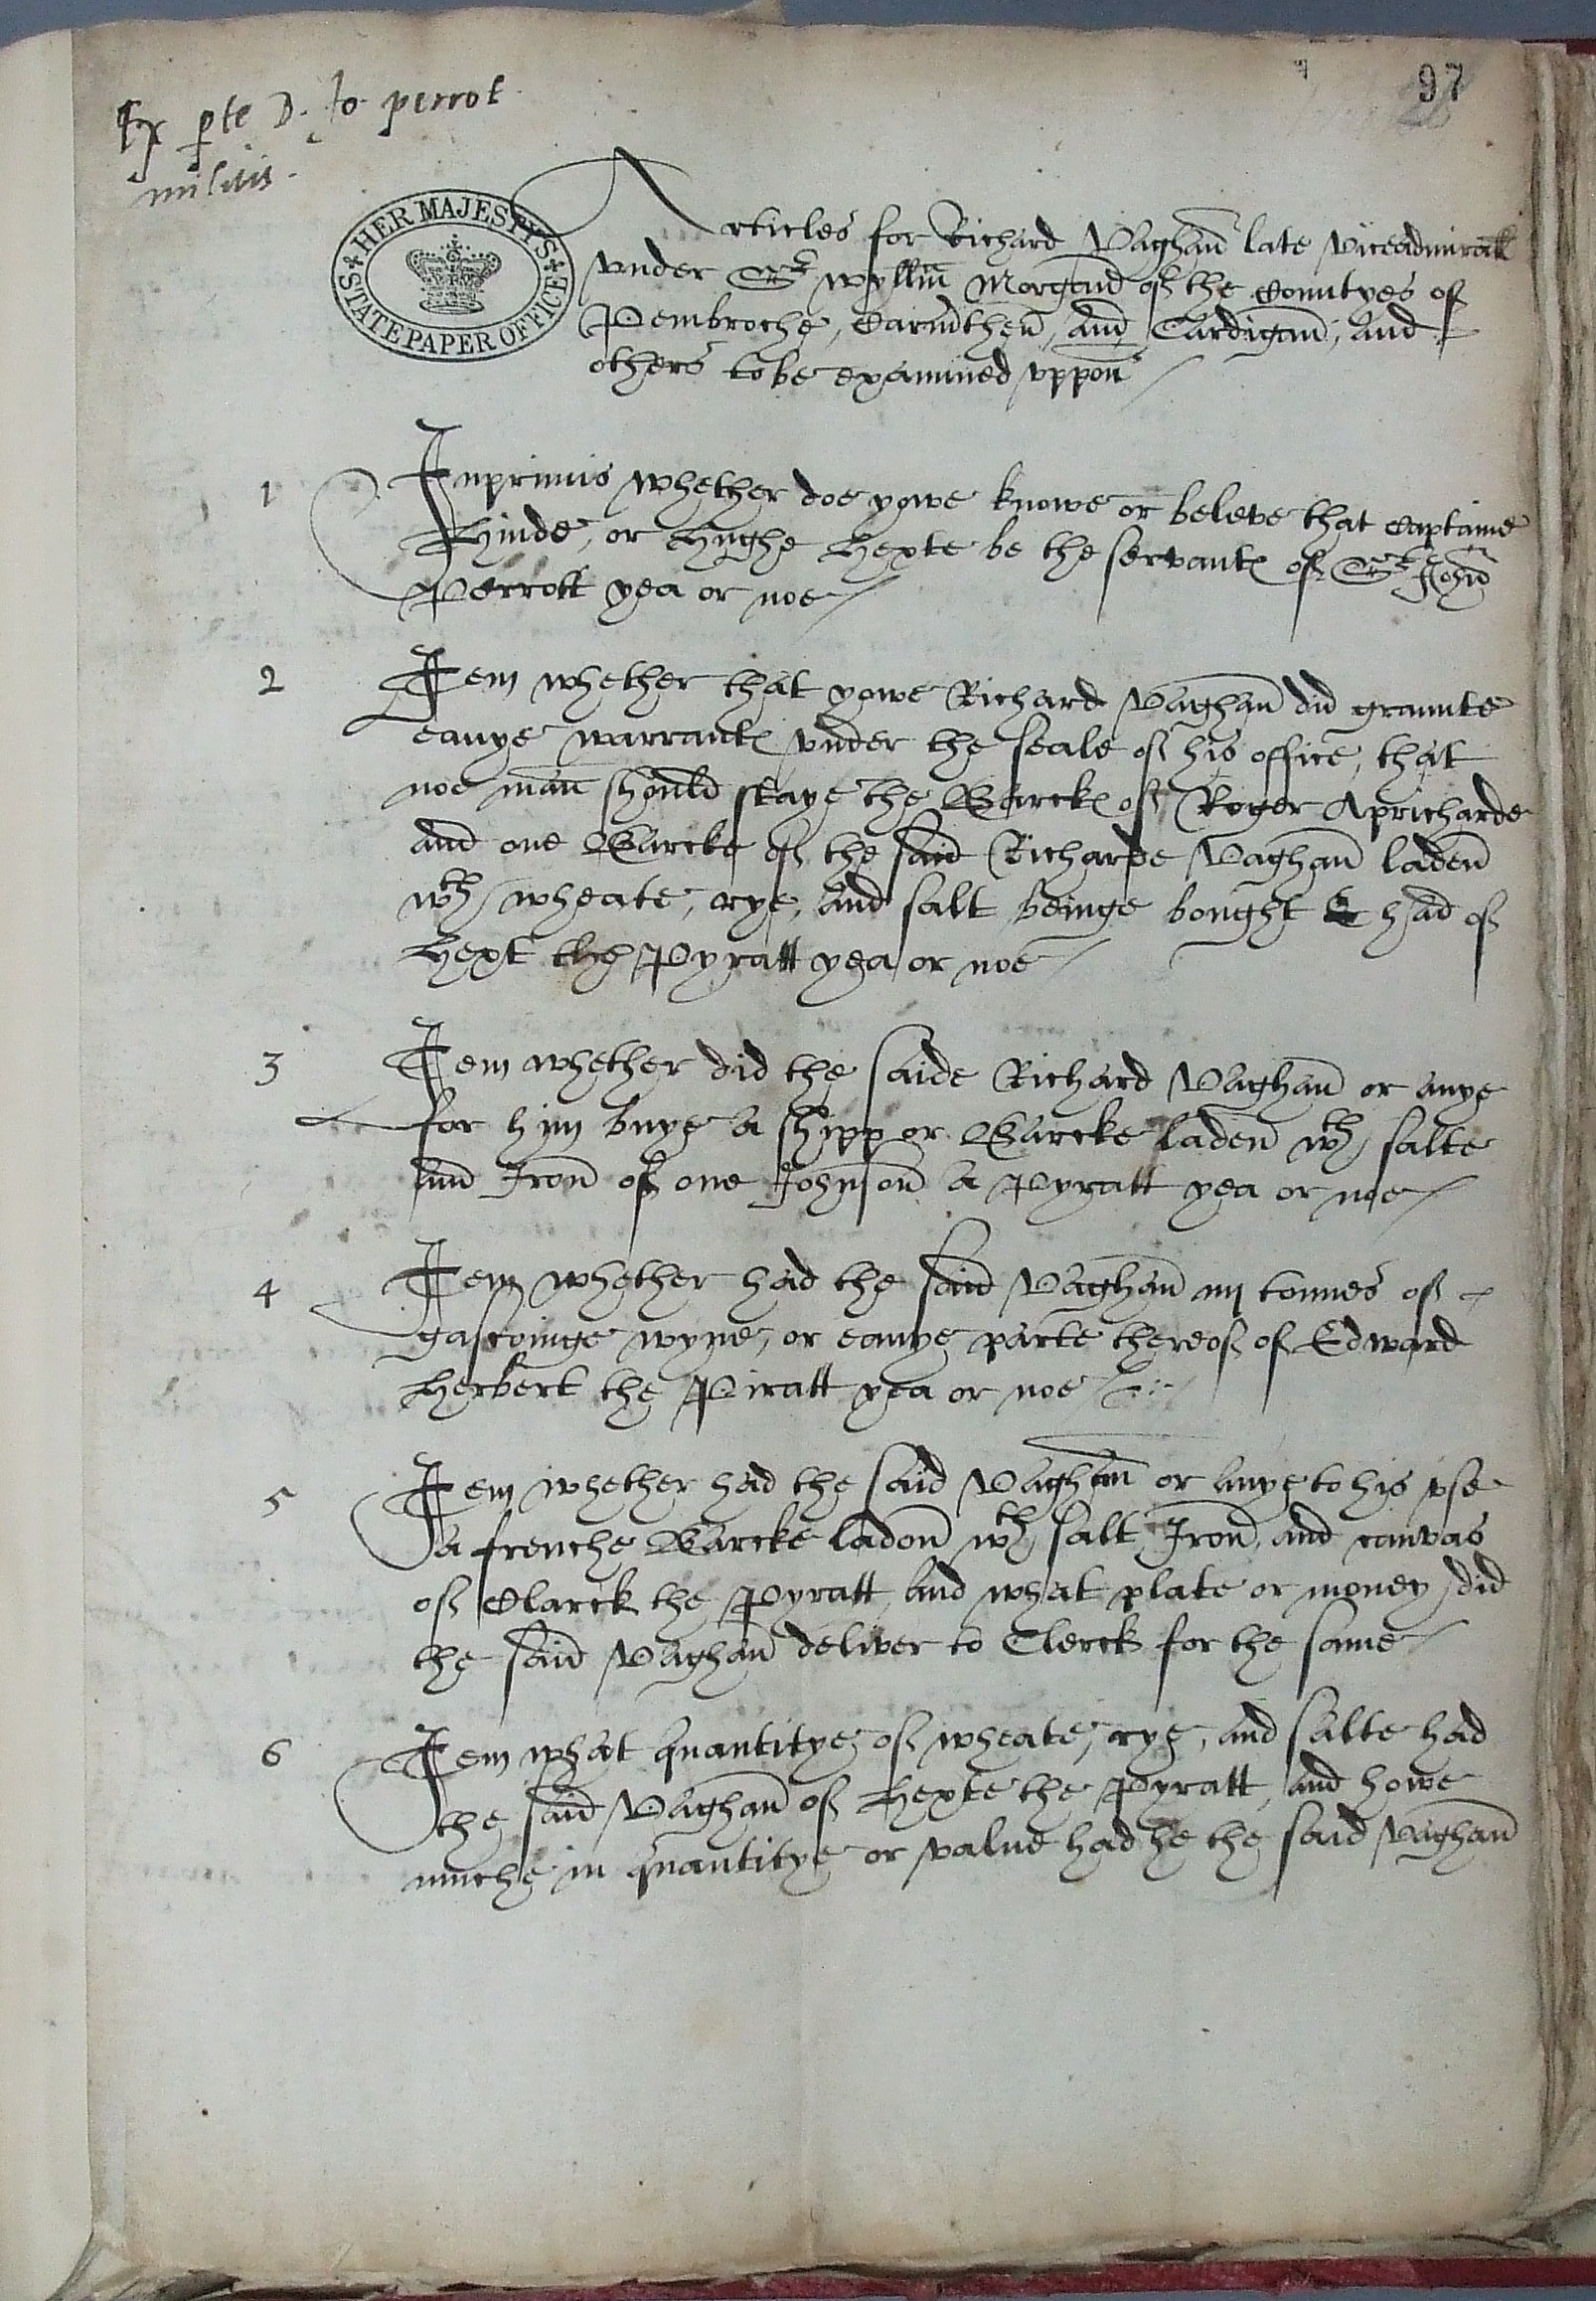 97
Ex pte D. Jo perrot
militis.
HER MAJESTY'S
STATE PAPER OFFICE
Articles for Richard Vaghan late viceadmirall
vnder Sr wyllm Morgan of the Countyes of
Pembroche, Carmthen, and Cardigan, and
others to be examined vppon
1 Inprimis whether doe yowe knowe or beleve that Captaine
Hinde, or Hughe Hexte be the servantes of Sr John
Perrott yea or noe
2 Item whether that yowe Richard Vaghan did graunte
eanye warrantes vnder the seale of his office, that
noe man should staye the Barckes of Roger Apricharde
and one Barcke of the said Richarde Vaghan laden
wth wheate, rye, and salt beinge bought & had of
Hext the Pyratt yea or noe
3 Item whether did the saide Richard Vaghan or anye
for hym buye a shipp or Barcke laden wth salte
and Iron of one Johnson a Pyratt yea or noe
4 Item whether had the said Vaghan iiij tonnes of
gascoinge wyne, or eanye parte thereof of Edward
Herbert the Piratt yea or noe
5 Item whether had the said Vaghan or anye to his vse
a frenche Barcke ladon wth salt, Iron, and canvas
of Clarck the Pyratt, and what plate or money did
the said Vaghan deliver to Clerck for the same
6 Item what quantitye of wheate, rye, and salte had
the said Vaghan of Hexte the Pyratt, and howe
muche in quantitye or value had he the said Vaghan